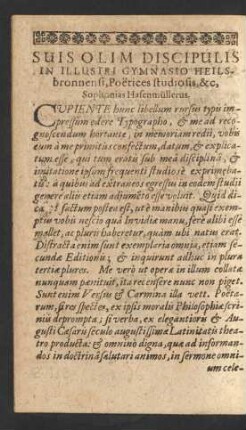 SUIS OLIM DISCIPULIS
IN ILLUSTRI GYMNASIO HEILS-
bronnensi, Poëtices studiosis, &c,
Sophonias Hasenmüllerus.
CUPIENTE hunc libellum rorsus typis im-
pressum edere Typographo, & me ad reco-
gnoscendum hortante, in memoriam redii, vobis
eum à me primitùs confectum, datum, & explica-
tum esse, qui tum eratis sub mea disciplinâ, &
imitatione ipsum frequenti studiosè exprimeba-
tis: à quibus ad extraneos egressus in eodem studii
genere aliis etiam adiumento esse voluit. Quid di-
ca? factum postea est, ut è manibus quasi exem-
ptus vobis nescio quâ Invidiæ manu, ferè alibi esse
mallet, ac pluris haberetur, quàm ubi natus erat.
Distracta enim sunt exemplaria omnia, etiam secun-
dæ Editionis; & inquirunt adhuc in plura
tertiæ plures. Me verò ut opera in illum collata
nunquam pœnituit, ita recensere nunc non piget.
Sunt enim Versus & Carmina illa vett. Poëta-
rum, si res spectes, ex ipsis moralis Philosophiæ scri-
niis deprompta; si verba, ex elegantiori & Au-
gusti Cæsaris seculo augustissimæ Latinitatis thea-
tro producta: & omninò digna, quæ ad informan-
dos in doctrinâ salutari animos, in sermone omni-
um cele-